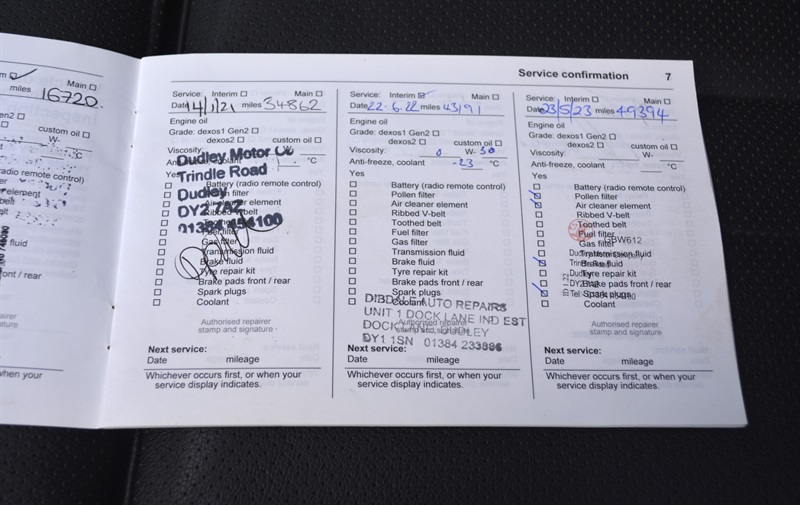 Main
miles 16720
custom oil
W-
radio remote control)
element
fluid
ont / rear
stamp and signature
when your
Service confirmation 7
Service: Interim Main
Date 14/1/21 miles 34862
Engine oil
Grade: dexos1 Gen2
dexos2 custom oil
Viscosity:
°C
Yes
Dudley Motor Co
Trindle Road
Dudley
DY2 7AZ
01384
Battery (radio remote control)
Pollen filter
Air cleaner element
Ribbed V-belt
Toothed belt
Fuel filter
Gas filter
Transmission fluid
Brake fluid
Tyre repair kit
Brake pads front / rear
Spark plugs
Coolant
Authorised repairer
stamp and signature
Next service:
Date mileage
Whichever occurs first, or when your
service display indicates.
Service: Interim Main
Date 22.6.22 miles 43191
Engine oil
Grade: dexos1 Gen2
dexos2 custom oil
Viscosity: 0 W- 30
Anti-freeze, coolant -23 °C
Yes
Battery (radio remote control)
Pollen filter
Air cleaner element
Ribbed V-belt
Toothed belt
Fuel filter
Gas filter
Transmission fluid
Brake fluid
Tyre repair kit
Brake pads front / rear
Spark plugs
Coolant
DIBDALE AUTO REPAIRS
UNIT 1 DOCK LANE IND EST
DOCK LANE DUDLEY
DY1 1SN 01384 233886
Authorised repairer
stamp and signature
Next service:
Date mileage
Whichever occurs first, or when your
service display indicates.
Service: Interim Main
Date 23/5/23 miles 49394
Engine oil
Grade: dexos1 Gen2
dexos2 custom oil
Viscosity: W-
Anti-freeze, coolant °C
Yes
Battery (radio remote control)
Pollen filter
Air cleaner element
Ribbed V-belt
Toothed belt
Fuel filter
GBW612
Gas filter
Transmission fluid
Brake fluid
Tyre repair kit
Brake pads front / rear
Spark plugs
Coolant
Authorised repairer
stamp and signature
Next service:
Date mileage
Whichever occurs first, or when your
service display indicates.